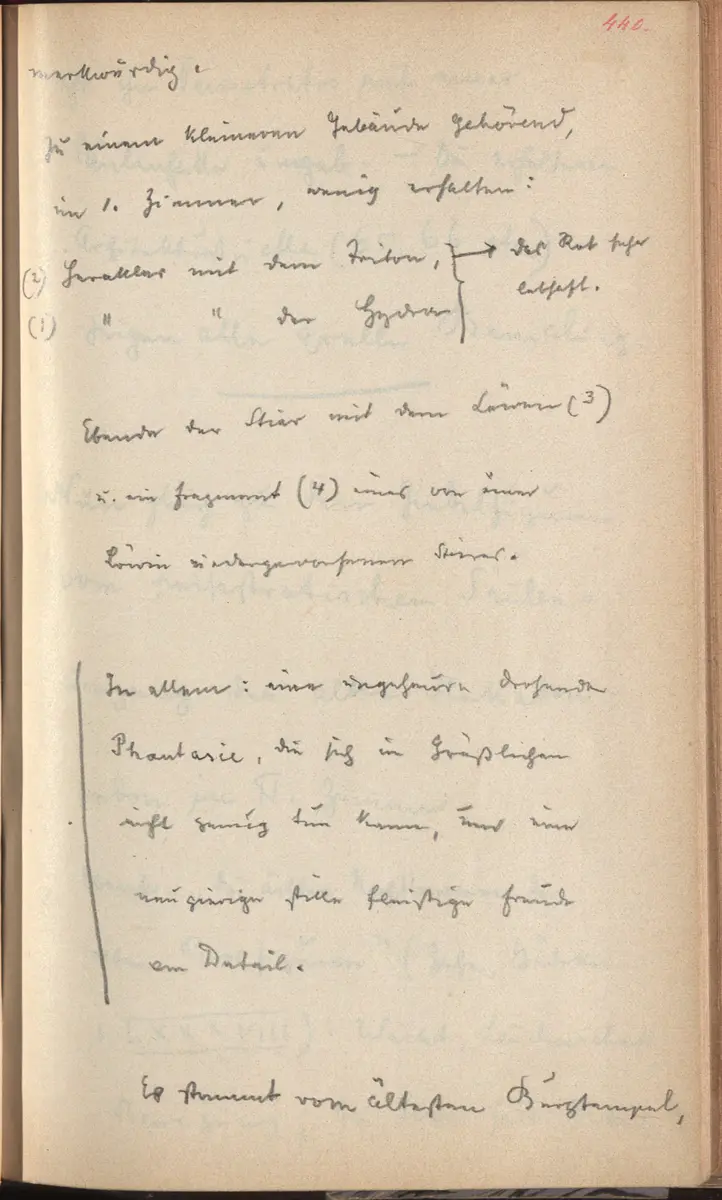 440.
merkwürdig.
Zu einem kleineren Gebäude gehörend,
im 1. Zimmer, wenig erhalten:
(2) Herakles mit dem Triton, → das Rot sehr
lebhaft.
(1) " " der Hydra
Ebenda der Stier mit dem Löwen (3)
u. ein Fragment (4) eines von einer
Löwin niedergeworfenen Stieres.
In allem: eine ungeheure drohende
Phantasie, die sich in Gräßlichen
nicht genug tun kann, und eine
neugierige stille fleißige Freude
am Detail.
Es stammt vom ältesten Burgtempel,